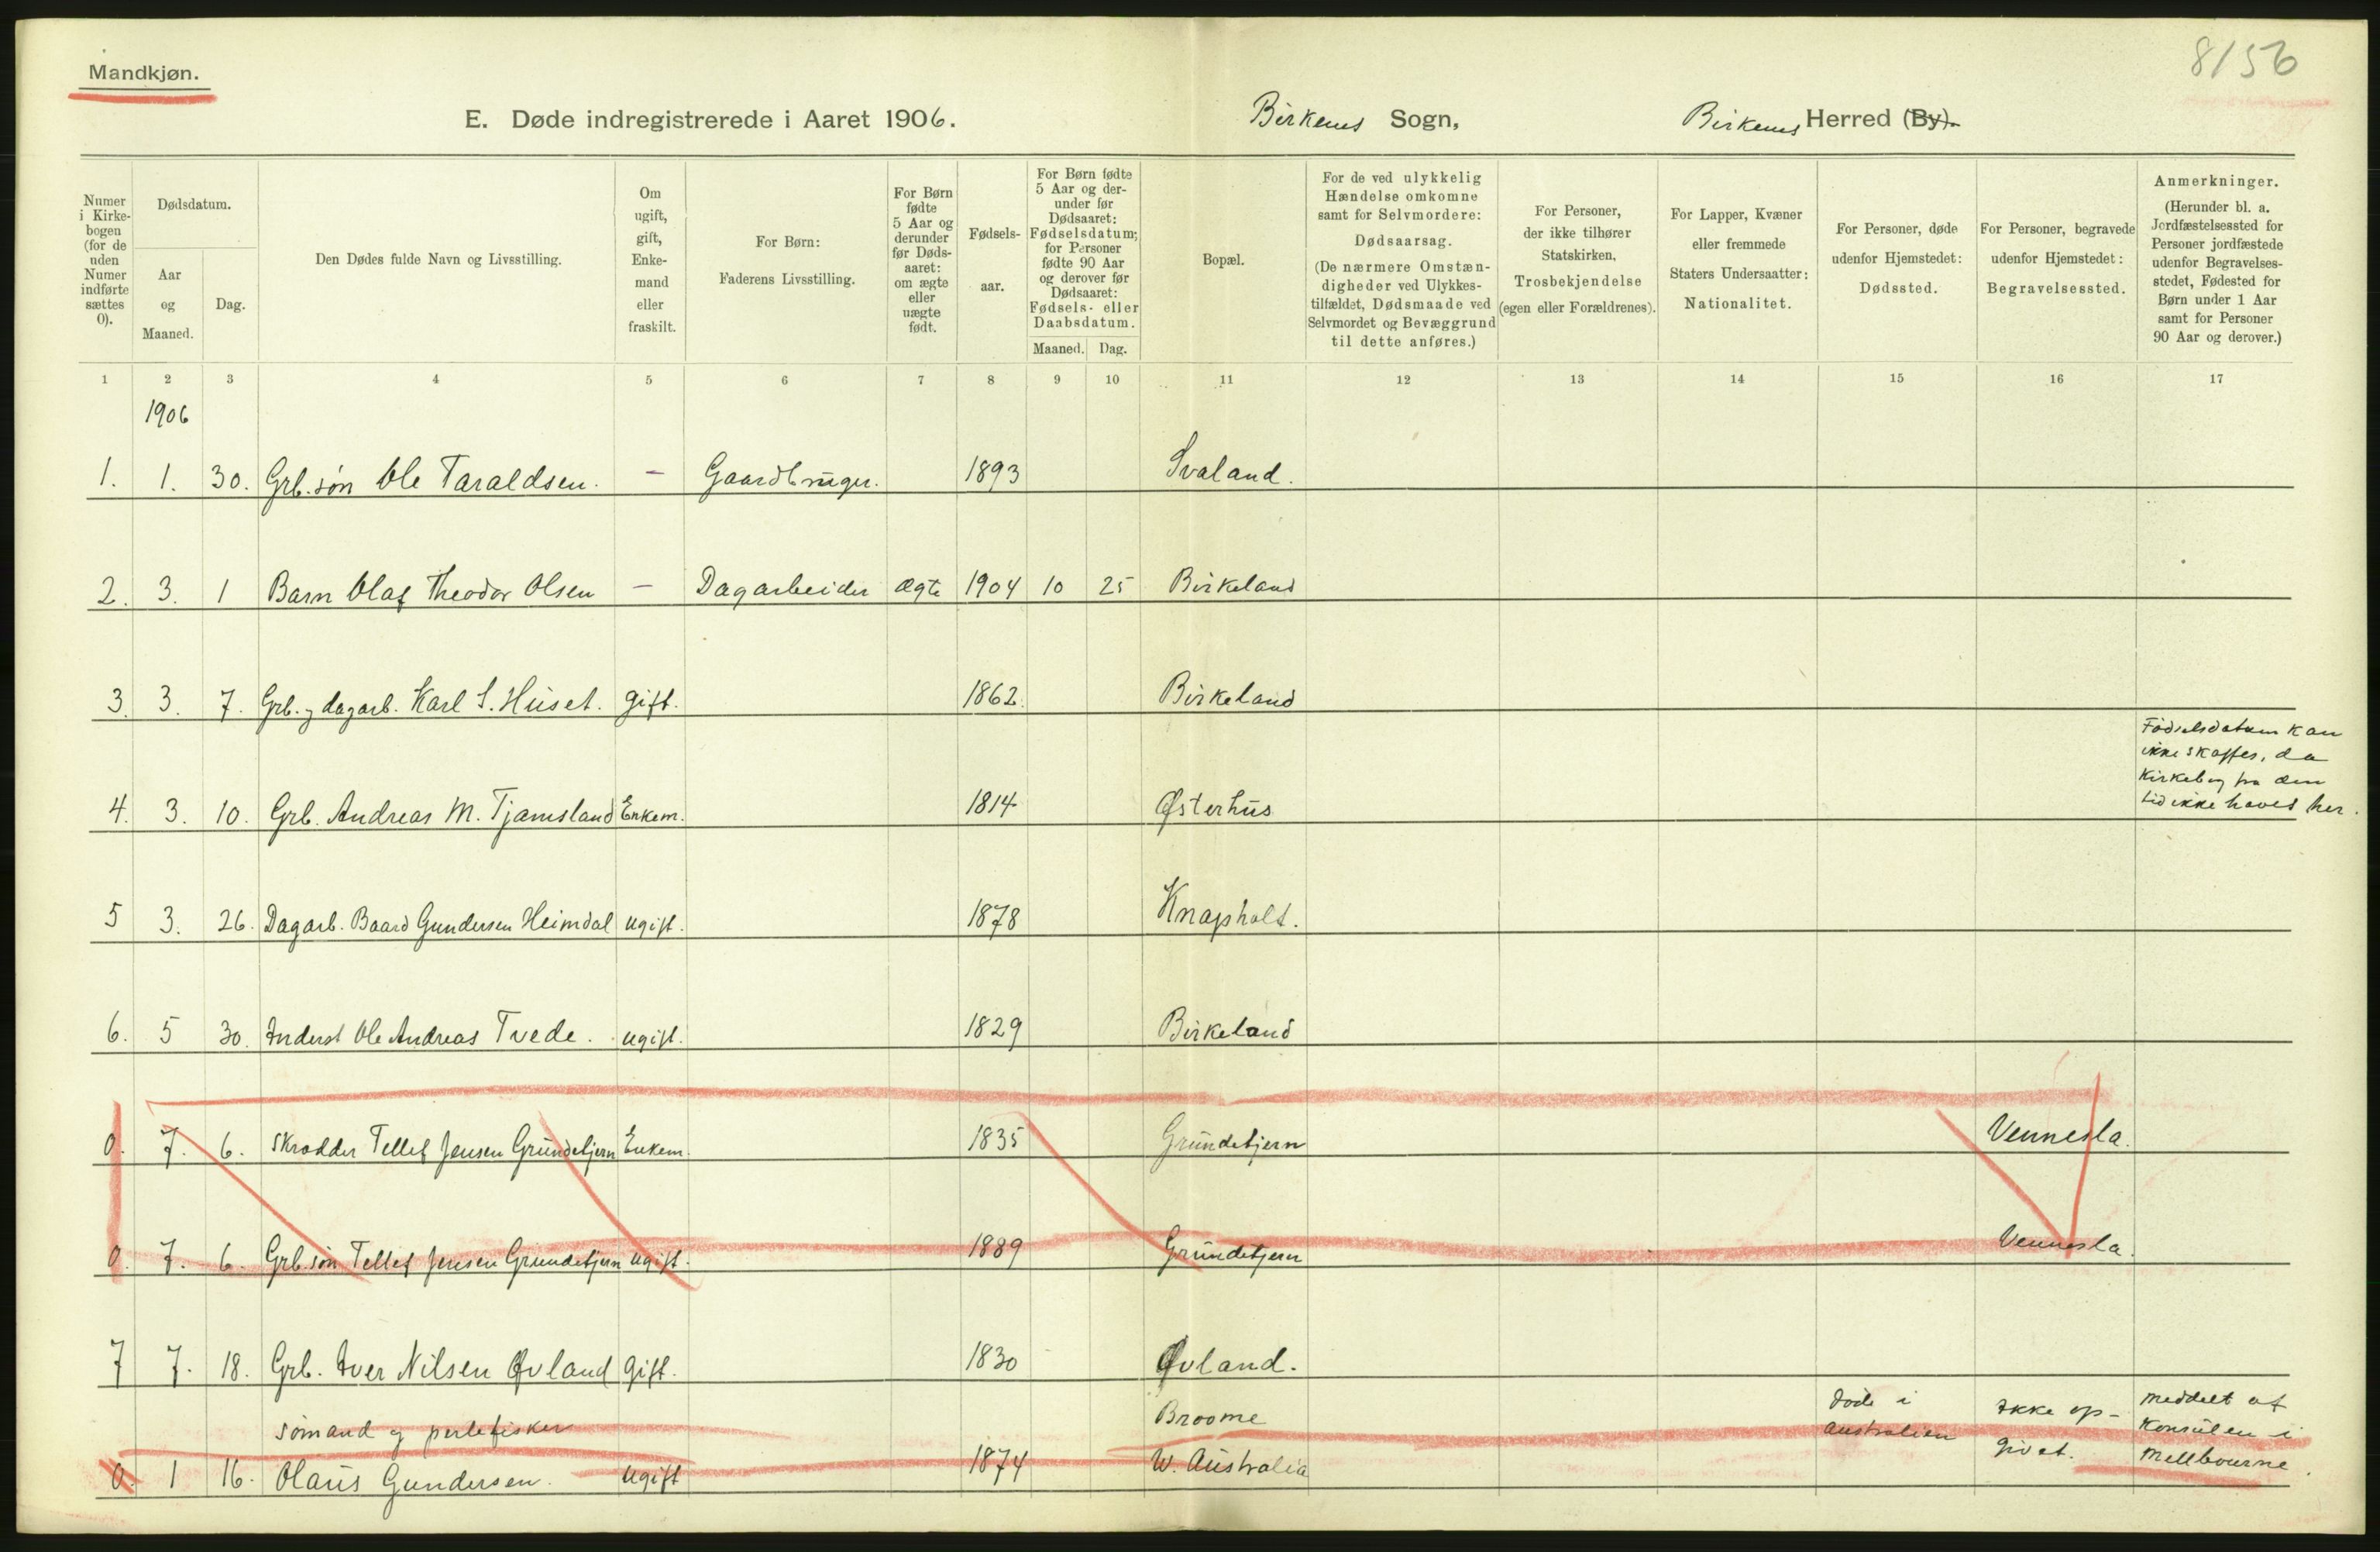 8/56
Mandkjøn.
E. Døde indregistrerede i Aaret 1906. Birkenes Sogn, Birkenes Herred (By).
Numer i Kirkebogen (for de uden Numer indførte sættes 0).
Dødsdatum.
Aar og Maaned.
Dag.
Den Dødes fulde Navn og Livsstilling.
Om ugift, gift, Enkemand eller fraskilt.
For Børn: Faderens Livsstilling.
For Børn fødte 5 Aar og derunder før Dødsaaret: om ægte eller uægte født.
Fødselsaar.
For Børn fødte 5 Aar og derunder før Dødsaaret: Fødselsdatum; for Personer fødte 90 Aar og derover før Dødsaaret: Fødsels- eller Daabsdatum.
Maaned. Dag.
Bopæl.
For de ved ulykkelig Hændelse omkomne samt for Selvmordere: Dødsaarsag. (De nærmere Omstændigheder ved Ulykkestilfældet, Dødsmaade ved Selvmordet og Bevæggrund til dette anføres.)
For Personer, der ikke tilhører Statskirken, Trosbekjendelse (egen eller Forældrenes).
For Lapper, Kvæner eller fremmede Staters Undersaatter: Nationalitet.
For Personer, døde udenfor Hjemstedet: Dødssted.
For Personer, begravede udenfor Hjemstedet: Begravelsessted.
Anmerkninger. (Herunder bl. a. Jordfæstelsessted for Personer jordfæstede udenfor Begravelsesstedet, Fødested for Børn under 1 Aar samt for Personer 90 Aar og derover.)
1 2 3 4 5 6 7 8 9 10 11 12 13 14 15 16 17
1906
1. 1. 30. Grb. søn Ole Taraldsen. - Gaardbruger. 1893 Svaland.
2. 3. 1 Barn Olaf Theodor Olsen - Dagarbeider ægte 1904 10 25 Birkeland
3. 3. 7. Grb. og dagarb. Karl S. Huset. gift. 1862. Birkeland
4. 3. 10. Grb. Andreas M. Tjamsland Enkem. 1814 Østerhus
Fødselsdatum kan
ikke skaffes, da
Kirkebog fra den
tid ikke haves her.
5 3. 26. Dagarb. Baard Gundersen Heimdal ugift. 1878 Knapholt.
6. 5 30. Inderst Ole Andreas Tvede. ugift. 1829 Birkeland
0. 7. 6. Skrædder Tellef Jensen Grundetjern Enkem. 1835 Grundetjern Vennesla.
0. 7. 6. Grb. søn Tellef Jensen Grundetjern ugift. 1889 Grundetjern Vennesla.
7 7. 18. Grb. Iver Nilsen Øvland gift. 1830 Øvland.
sømand og perlefisker Broome døde i Ikke op- meddelt af
Australien givet. Konsulen i
0. 1 16. Olaus Gundersen. ugift 1874 W. Australia Mellbourne.